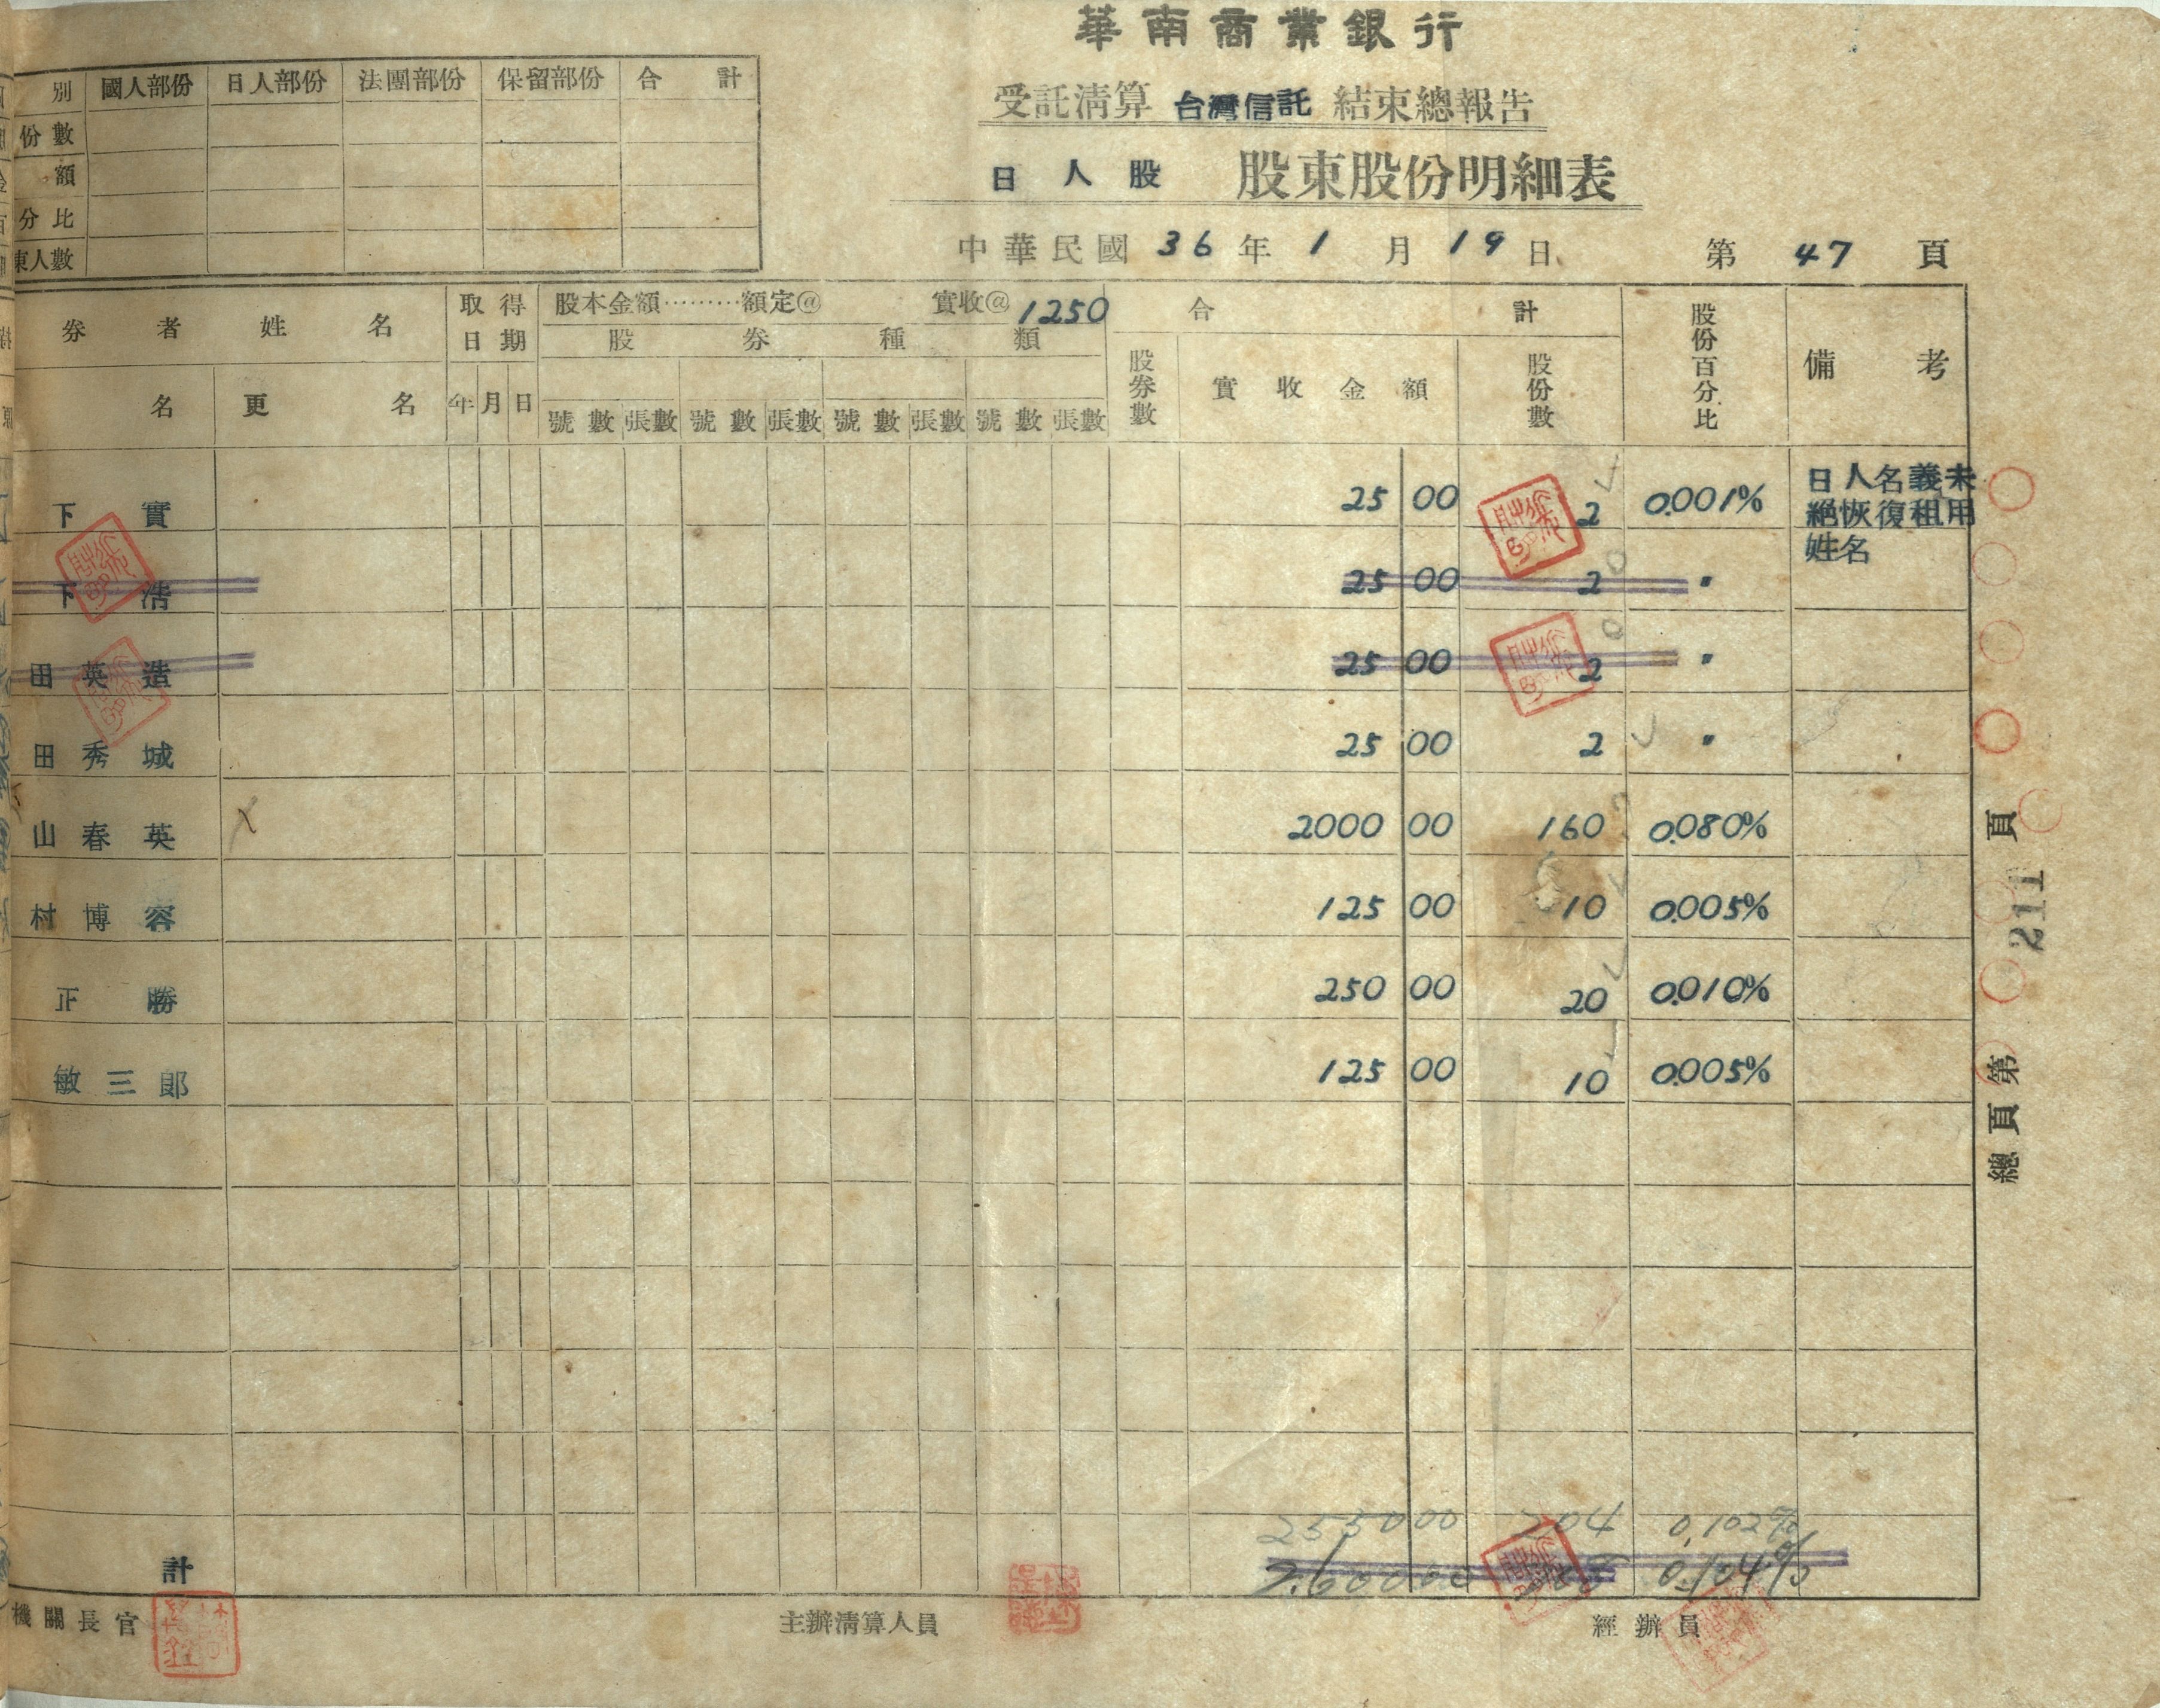 華南商業銀行
受託清算 台灣信託 結束總報告
日人股 股東股份明細表
中華民國 36 年 1 月 19 日 第 47 頁
別 國人部份 日人部份 法團部份 保留部份 合計
份數
額
分比
東人數
券者姓名 取得日期 股本金額………額定@ 實收@ 1250 合計 股份百分比 備考
股券種類
名 更名 年 月 日 號數 張數 號數 張數 號數 張數 號數 張數 股券數 實收金額 股份數
下實 25 00 2 0.001% 日人名義未
絕恢復租用
姓名
下浩 25 00 2 〃
田英造 25 00 2 〃
田秀城 25 00 2 〃
山春英 2000 00 160 0.080%
村博容 125 00 10 0.005%
正勝 250 00 20 0.010%
敏三郎 125 00 10 0.005%
2550 00 204 0.102%
計 2.600 00 208 0.104%
機關長官 主辦清算人員 經辦員
總頁第 211 頁